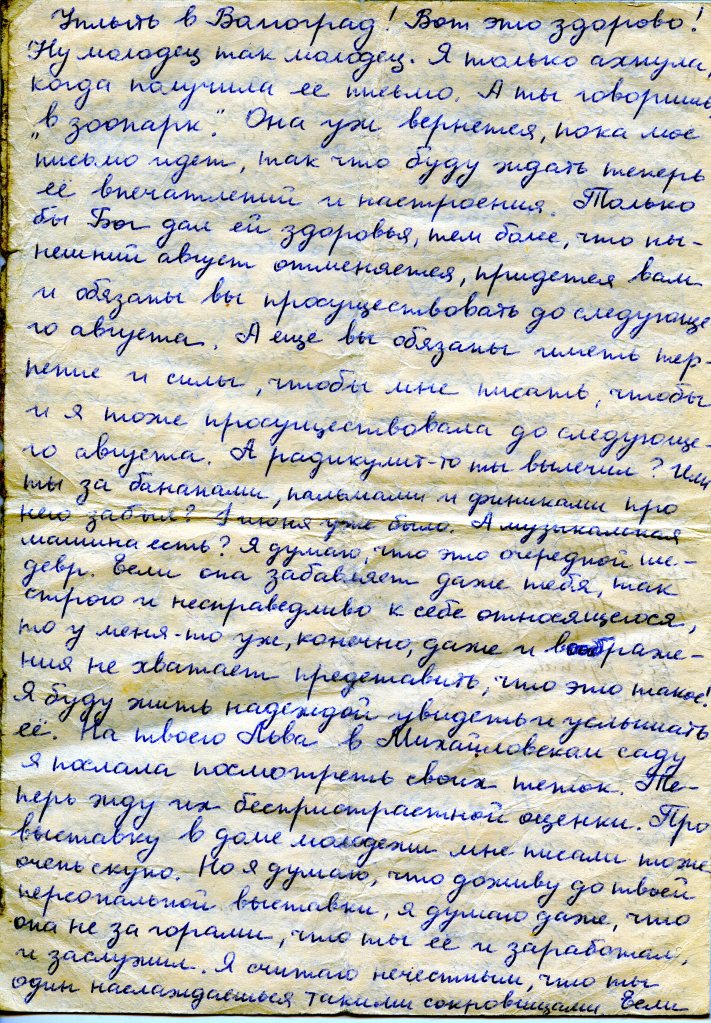 Уплыть в Волгоград! Вот это здорово!
Ну молодец так молодец. Я только ахнула,
когда получила ее письмо. А ты говоришь,
„в зоопарк". Она уж вернется, пока мое
письмо идет, так что буду ждать теперь
её впечатлений и настроения. Только
бы Бог дал ей здоровья, тем более, что ны-
нешний август отменяется, придется вам
и обязаны вы просуществовать до следующе
го августа. А еще вы обязаны иметь тер-
пение и силы, чтобы мне писать, чтобы
и я тоже просуществовала до следующе-
го августа. А радикулит-то ты вылечил? Или
ты за бананами, пальмами и финиками про
него забыл? 1 июня уже было. А музыкальная
машина есть? Я думаю, что это очередной ше-
девр. Если она забавляет даже тебя, так
строго и несправедливо к себе относящегося,
то у меня-то уж, конечно, даже и воображе-
ния не хватает представить, что это такое!
Я буду жить надеждой увидеть и услышать
её. На твоего Льва в Михайловском саду
я послала посмотреть своих теток. Те-
перь жду их беспристрастной оценки. Про
выставку в доме молодежи мне писали тоже
очень скупо. Но я думаю, что доживу до твоей
персональной выставки, я думаю даже, что
она не за горами, что ты её и заработал,
и заслужил. Я считаю нечестным, что ты
один наслаждаешься такими сокровищами. Если